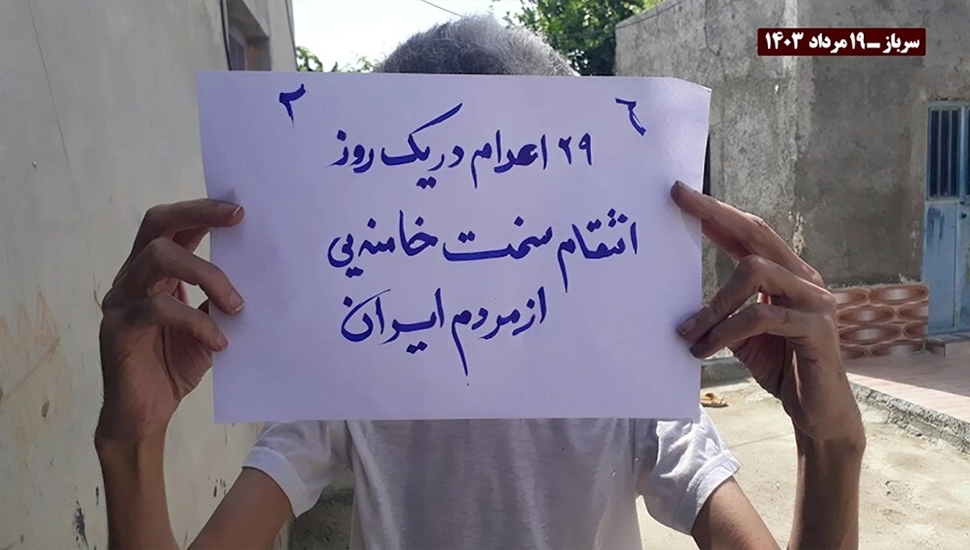 سرباز ــ ۱۹ مرداد ۱۴۰۳
۲۹ اعدام در یک روز
انتقام سخت خامنه‌یی
از مردم ایران